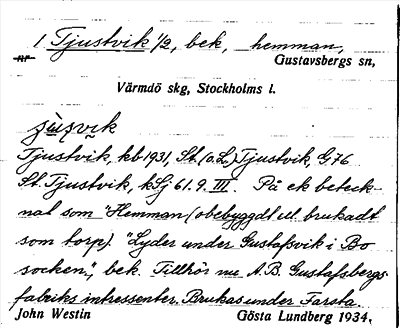 1. Tjustvik 1/2, bek, hemman,
nr
Gustavsbergs sn,
Värmdö skg, Stockholms l.
Tjustvik, kb 1931, St. (o. L.) Tjustvik, G 76
St. Tjustvik, kSj 61.9.III. På ek beteck-
nat som "Hemman (obebyggdt ell. brukadt
som torp)." Lyder under Gustafsvik i Bo
socken", bek. Tillhör nu A.B. Gustafsbergs
fabriks intressenter. Brukas under Farsta.
John Westin
Gösta Lundberg 1934.